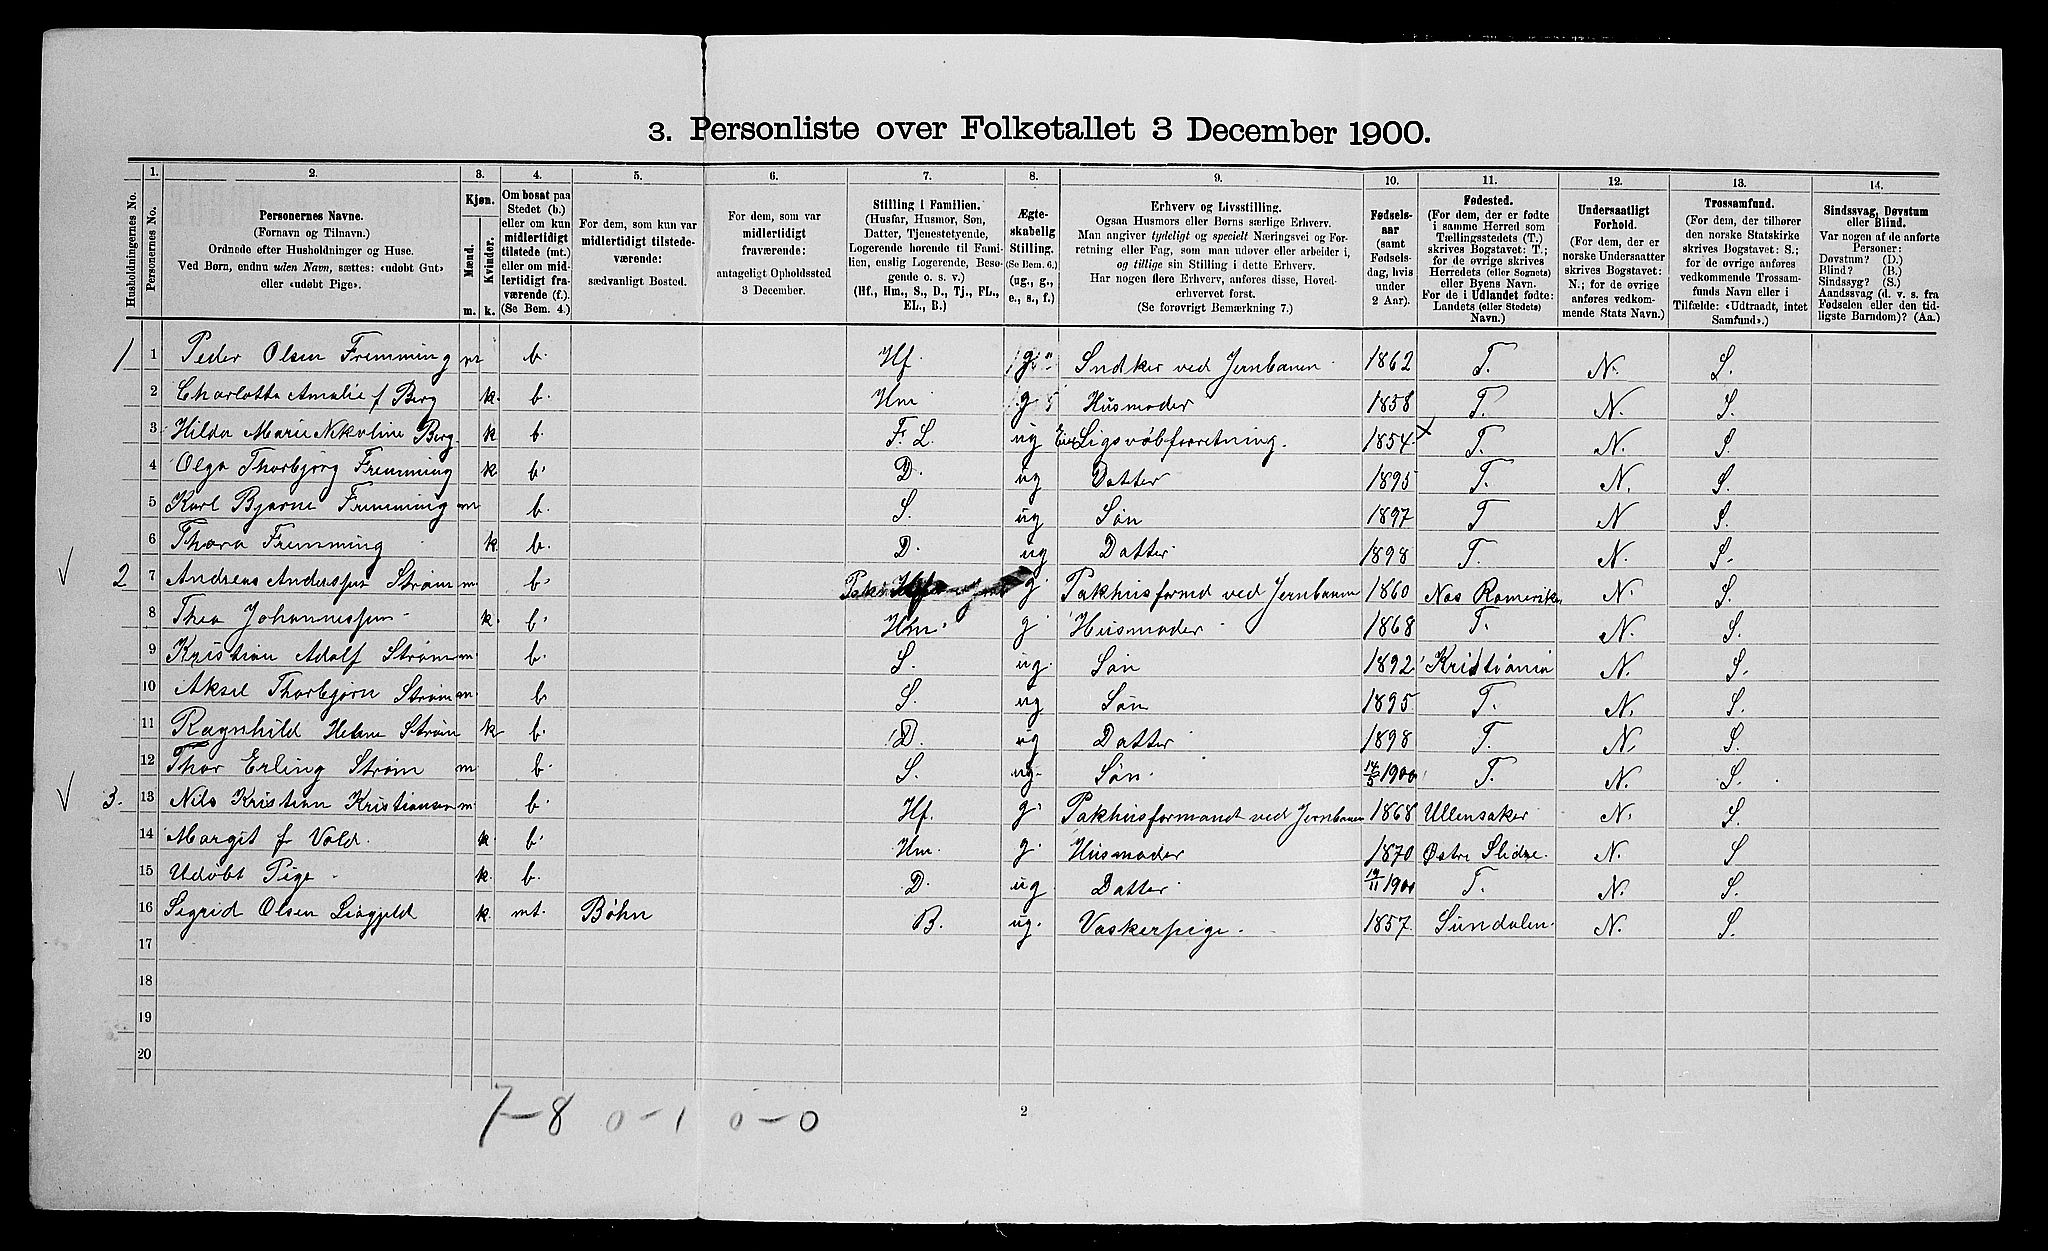 3. Personliste over Folketallet 3 December 1900.
1. 2. 3. 4. 5. 6. 7. 8. 9. 10. 11. 12. 13. 14.
Husholdningernes No.
Personernes No.
Personernes Navne.
(Fornavn og Tilnavn.)
Ordnede efter Husholdninger og Huse.
Ved Børn, endnu uden Navn, sættes: «udøbt Gut»
eller «udøbt Pige».
Kjøn.
Mænd.
Kvinder.
m. k.
Om bosat paa
Stedet (b.)
eller om kun
midlertidigt
tilstede (mt.)
eller om mid-
lertidigt fra-
værende (f.).
(Se Bem. 4.)
For dem, som kun var
midlertidigt tilstede-
værende:
sædvanligt Bosted.
For dem, som var
midlertidigt
fraværende:
antageligt Opholdssted
3 December.
Stilling i Familien.
(Husfar, Husmor, Søn,
Datter, Tjenestetyende,
Logerende hørende til Fami-
lien, enslig Logerende, Besø-
gende o. s. v.)
(Hf., Hm., S., D., Tj., FL.,
EL., B.)
Ægte-
skabelig
Stilling.
(Se Bem. 6.)
(ug., g.,
e., s., f.)
Erhverv og Livsstilling.
Ogsaa Husmors eller Børns særlige Erhverv.
Man angiver tydeligt og specielt Næringsvei og For-
retning eller Fag, som man udøver eller arbeider i,
og tillige sin Stilling i dette Erhverv.
Har nogen flere Erhverv, anføres disse, Hoved-
erhvervet først.
(Se forøvrigt Bemærkning 7.)
Fødsels-
aar
(samt
Fødsels-
dag, hvis
under
2 Aar).
Fødested.
(For dem, der er fødte
i samme Herred som
Tællingsstedets (T.)
skrives Bogstavet: T.;
for de øvrige skrives
Herredets (eller Sognets)
eller Byens Navn.
For de i Udlandet fødte:
Landets (eller Stedets)
Navn.)
Undersaatligt
Forhold.
(For dem, der er
norske Undersaatter
skrives Bogstavet:
N.; for de øvrige
anføres vedkom-
mende Stats Navn.)
Trossamfund.
(For dem, der tilhører
den norske Statskirke
skrives Bogstavet: S.;
for de øvrige anføres
vedkommende Trossam-
funds Navn eller i
Tilfælde: «Udtraadt, intet
Samfund».)
Sindssvag, Døvstum
eller Blind.
Var nogen af de anførte
Personer:
Døvstum? (D.)
Blind? (B.)
Sindssyg? (S.)
Aandssvag (d. v. s. fra
Fødselen eller den tid-
ligste Barndom)? (Aa.)
1 1 Peder Olsen Fremming m b. Hf g Sndker ved Jernbanen 1862 T. N. S.
2 Charlotta Amalie f Berg k. b. Hm g Husmoder 1858 T. N. S.
3 Hilda Marie Nikoline Berg. k b. F. L. ug Ligsvøbforretning. 1854 T. N. S.
4 Olga Thorbjørg Fremming k b. D. ug Datter 1895 T. N. S.
5 Karl Bjarne Fremming m b. S. ug Søn 1897 T N S.
6 Thora Fremming k b. D. ug Datter 1898 T. N. S.
2 7 Andreas Anderssen Strøm m. b. Hf g. Pakhusformd ved Jernbanen 1860 Nas Romerike N. S.
8 Thea Johannessen k. b. Hm. g Husmoder 1868 T. N. S.
9 Kristian Adolf Strøm m. b. S. ug. Søn 1892 Kristiania N. S.
10 Aksel Thorbjørn Strøm m b. S. ug Søn 1895 T. N. S.
11 Ragnhild Helene Strøm k b. D. ug Datter 1898 T. N. S.
12 Thor Erling Strøm m b. S. ug. Søn. 14/5 1900 T. N. S.
3. 13 Nils Kristian Kristiansen m. b. Hf. g. Pakhusformand ved Jernbanen 1868 Ullensaker N. S.
14 Margit f Vold. k. b. Hm. g. Husmoder 1870 Østre Slidre. N. S
15 Udøbt Pige k. b. D. ug Datter 19/11 1900 T. N. S.
16 Sigrid Olsen k. mt. Bøhn B. ug. Vaskerpige. 1857 Sundalen. N. S.
17
18
19
20
7-8 0-1 0-0
2